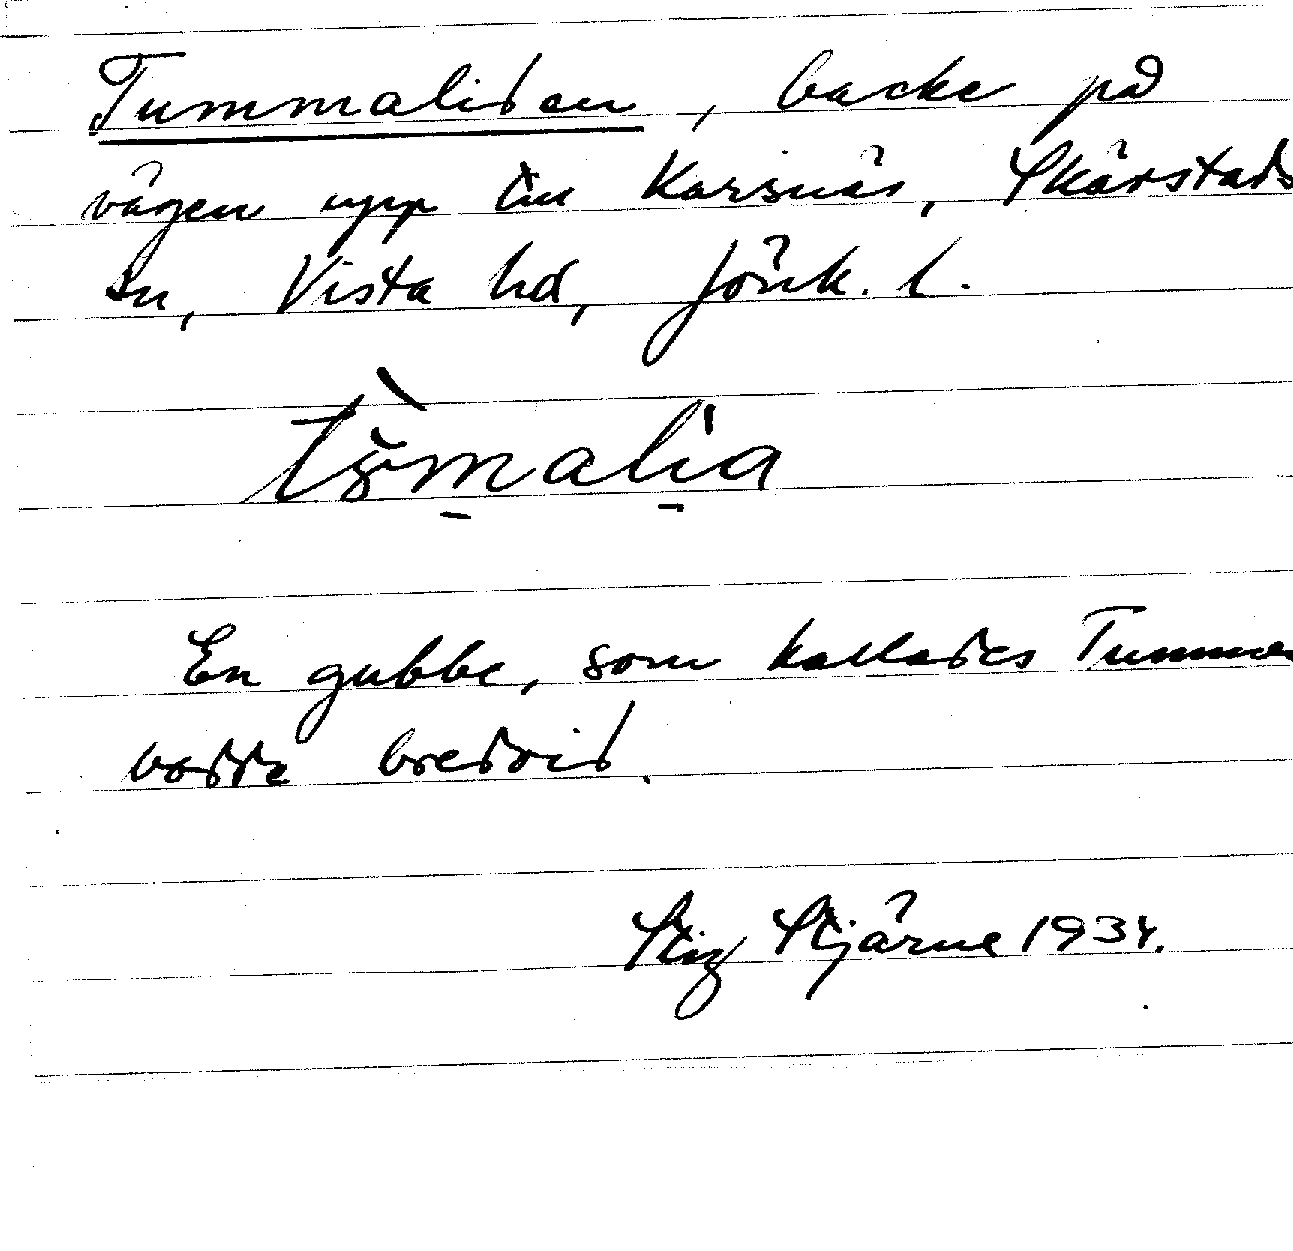 Tummaliden, backe på
vägen upp till Karsnäs, Skärstads
sn, Vista hd, Jönk. l.
En gubbe, som kallades Tumme
bodde bredvid.
Stig Stjärne 1934.